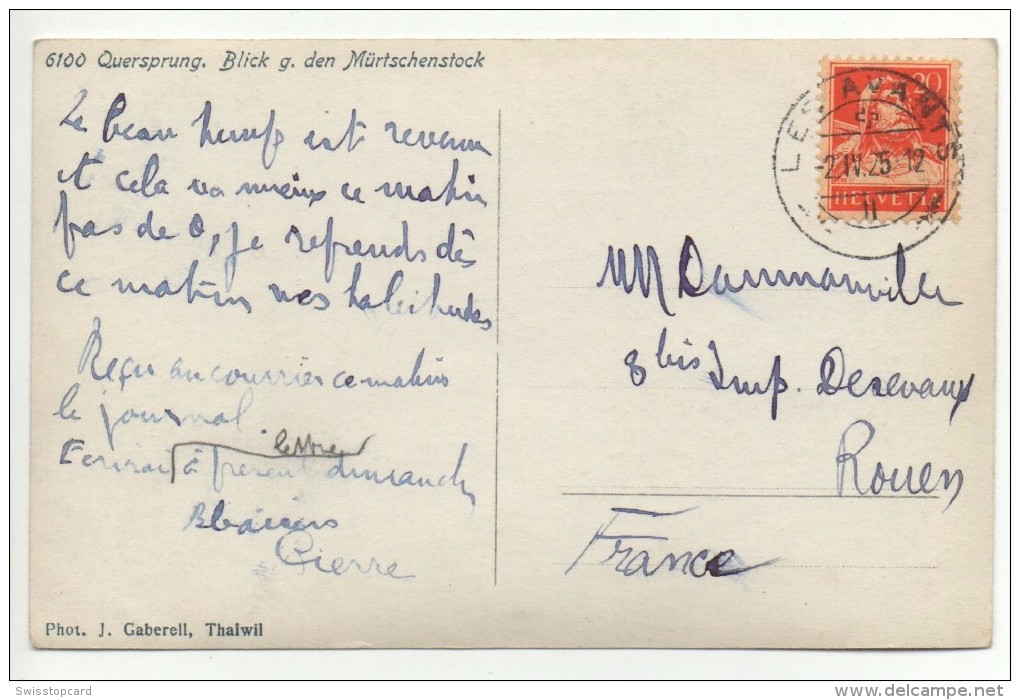 6100 Quersprung. Blick g. den Mürtschenstock
Le beau temps est revenu
et cela va mieux ce matin
pas de 0, je reprends dès
ce matin mes habitudes
Reçu au courrier ce matin
le journal.
lettre
Ecrirai à présent dimanche
Baisers
Pierre
Phot. J. Gaberell, Thalwil
20
HELVETIA
LES AVANTS
-2.IV.25.12
II
MM Dammanville
8 bis Imp. Desevaux
Rouen
France
Swisstopcard
www.delcampe.net